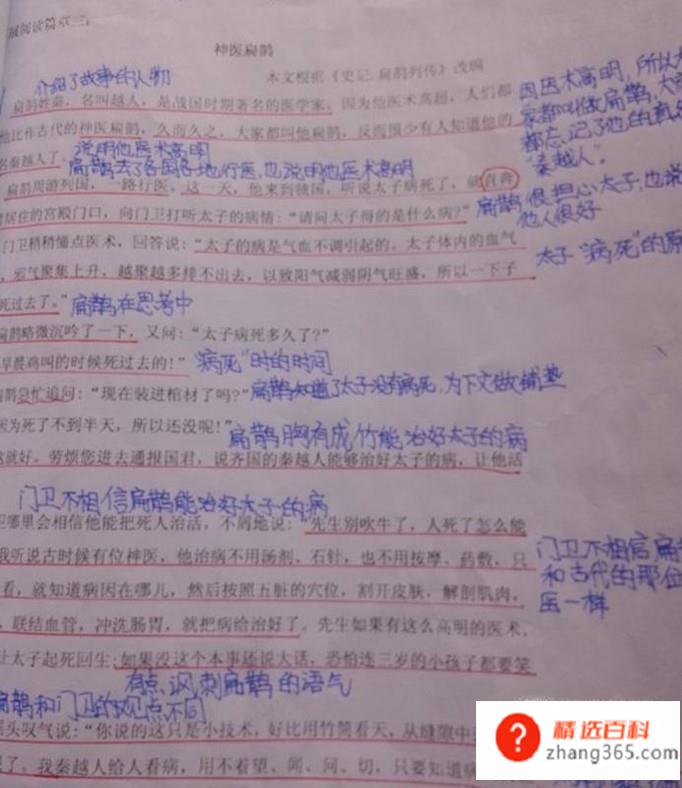 展阅读篇章三：
神医扁鹊
介绍了故事的人物
本文根据《史记.扁鹊列传》改编
扁鹊姓秦，名叫越人，是战国时期著名的医学家，因为他医术高超，人们都
因医术高明，所以大
家都叫做扁鹊，大家
他比作古代的神医扁鹊，久而久之，大家都叫他扁鹊，反而很少有人知道他的
都忘记了他的真名
名秦越人了。
说明他医术高明
"秦越人"。
扁鹊去了各国各地行医，也说明他医术高明
扁鹊周游列国，一路行医。这一天，他来到虢国，听说太子病死了，就直奔
扁鹊很担心太子，也说
他人很好
居住的宫殿门口，向门卫打听太子的病情："请问太子得的是什么病？"
门卫稍稍懂点医术，回答说："太子的病是气血不调引起的。太子体内的血气
太子"病死"的原
，邪气聚集上升，越聚越多排不出去，以致阳气减弱阴气旺盛，所以一下子
死过去了。"
扁鹊在思考中
扁鹊略微沉吟了一下，又问："太子病死多久了？"
早晨鸡叫的时候死过去的！"
"病死"时的时间
扁鹊急忙追问："现在装进棺材了吗？"
扁鹊知道了太子没有病死，为下文做铺垫
因为死了不到半天，所以还没呢！"
扁鹊胸有成竹能治好太子的病
这就好。劳烦您进去通报国君，说齐国的秦越人能够治好太子的病，让他活
门卫不相信扁鹊能治好太子的病
卫哪里会相信他能把死人治活，不屑地说："先生别吹牛了，人死了怎么能
我听说古时候有位神医，他治病不用汤剂、石针，也不用按摩、药敷，只
门卫不相信扁
和古代的那位
医一样
看，就知道病因在哪儿，然后按照五脏的穴位，割开皮肤，解剖肌肉，
，联结血管，冲洗肠胃，就把病给治好了。先生如果有这么高明的医术，
让太子起死回生；如果没这个本事还说大话，恐怕连三岁的小孩子都要笑
有点讽刺扁鹊的语气
扁鹊和门卫的观点不同
摇头叹气说："你说的这只是小技术，好比用竹筒看天，从缝隙中
了。我秦越人给人看病，用不着望、闻、问、切，只要知道病
精选百科
zhang365.com